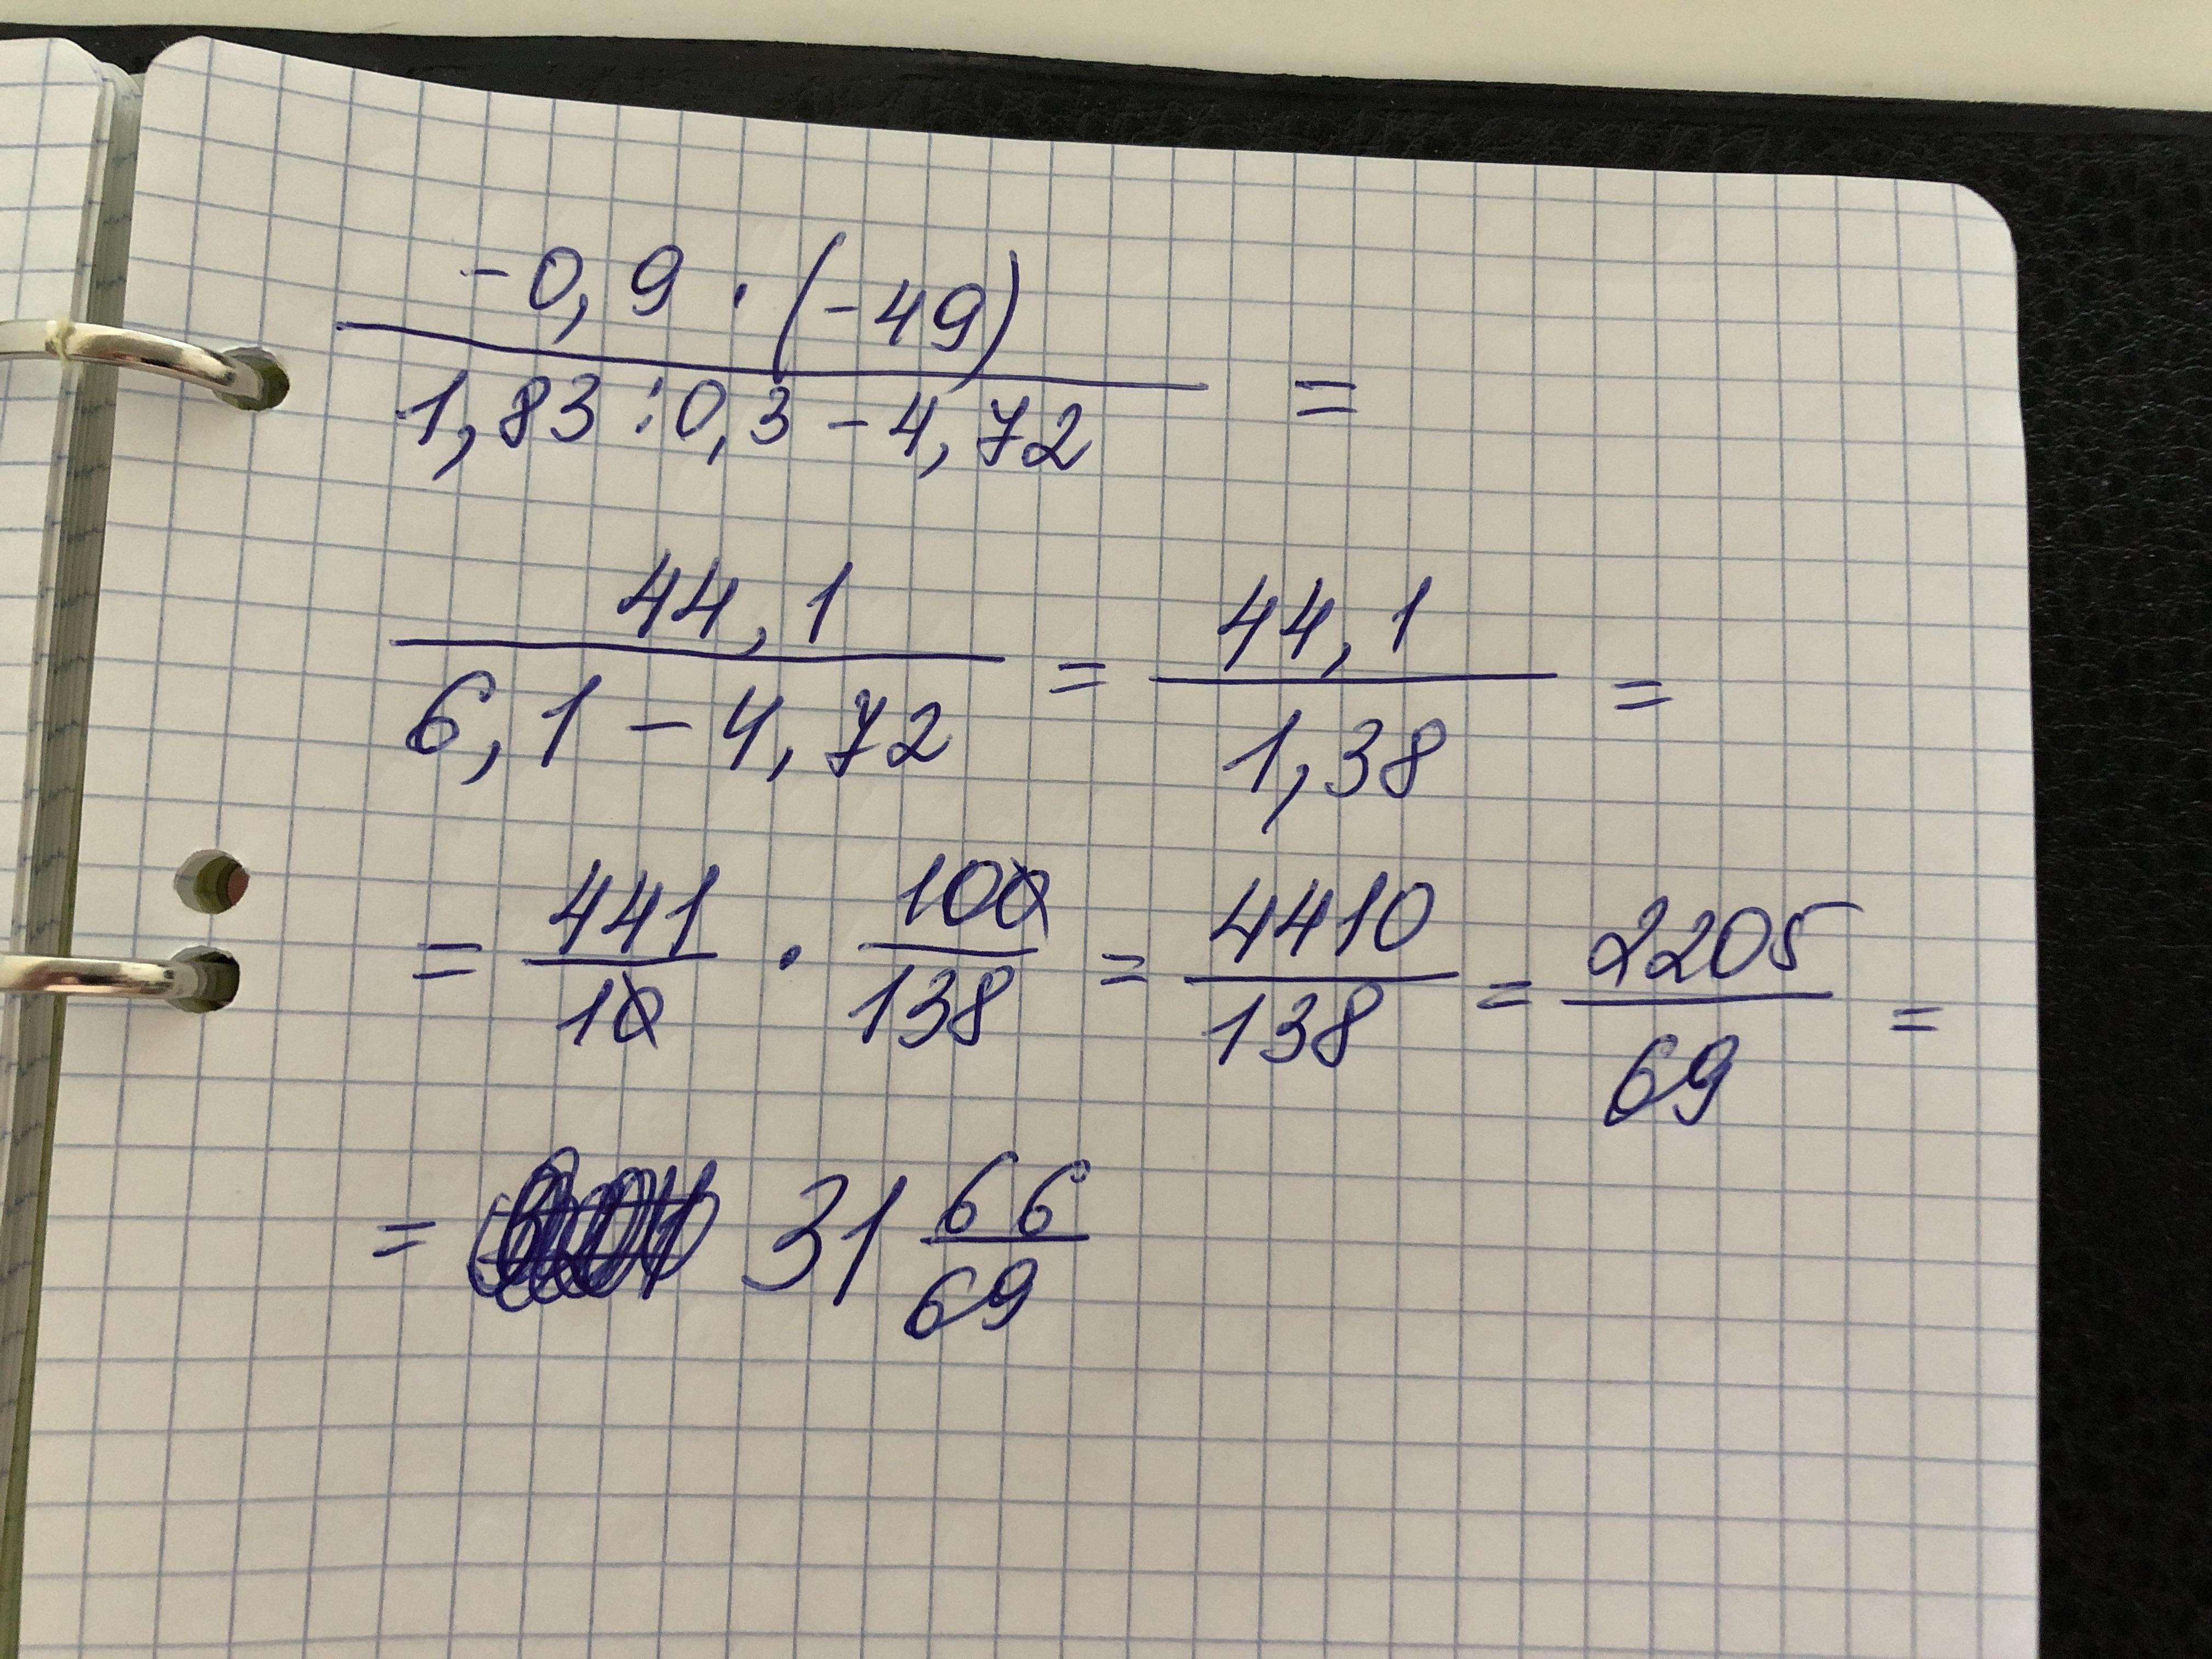 -0,9 · (-49)
1,83 : 0,3 - 4,72 =
44,1 44,1
6,1 - 4,72 = 1,38 =
= 441/10 · 100/138 = 4410/138 = 2205/69 =
= 31 66/69